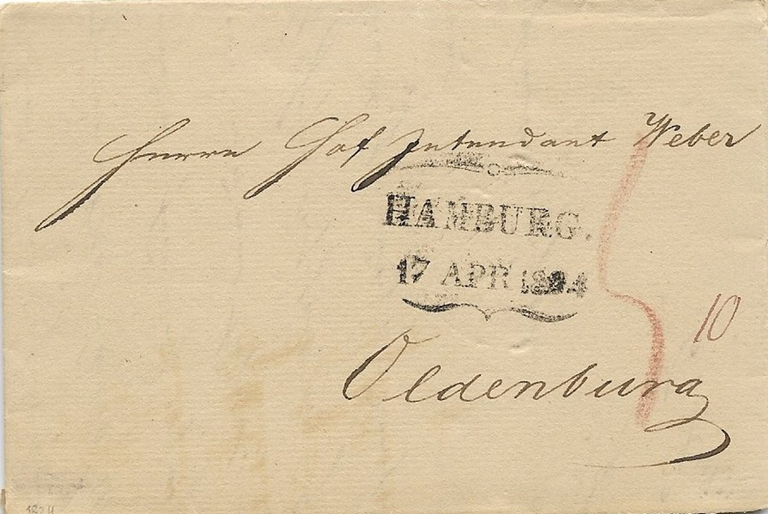 Herrn Hof Intendant Weber
HAMBURG.
17 APR 1824
10
Oldenburg
1824